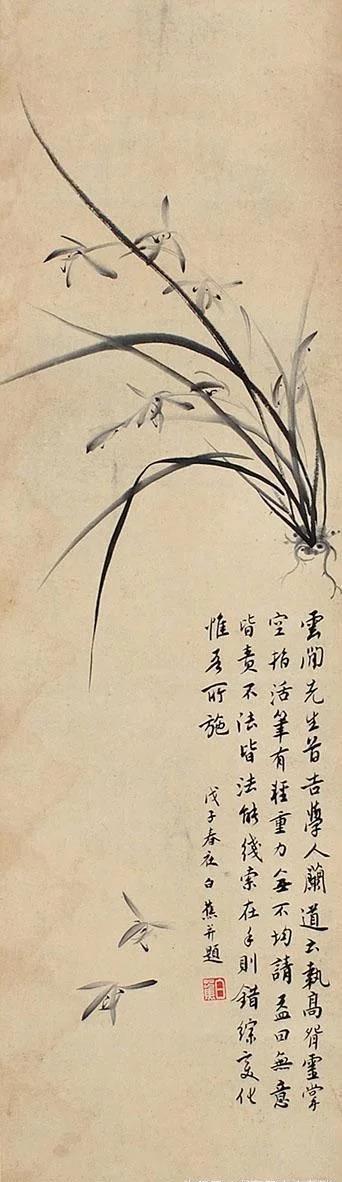 雲間先生昔告學人蘭道云執高臂靈掌
空指活筆有輕重力無不均請益曰無意
皆責不法皆法能綫索在手則錯綜變化
惟吾所施
戊子春社白蕉并題